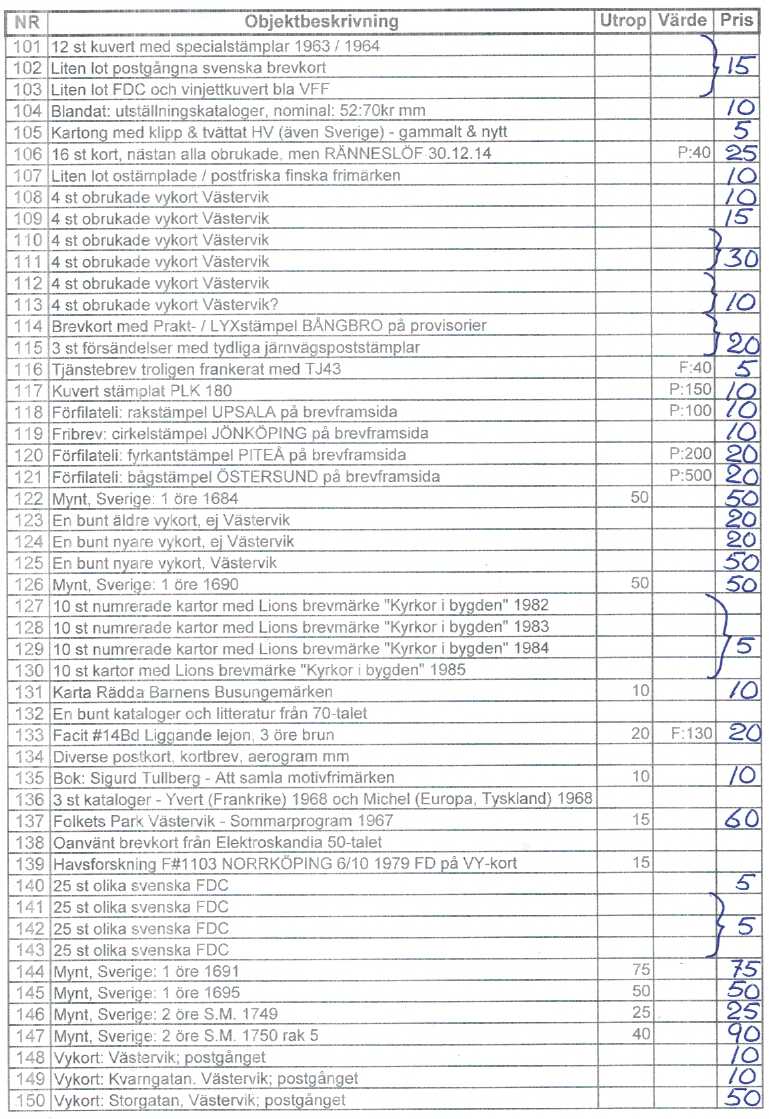 NR Objektbeskrivning Utrop Värde Pris
101 12 st kuvert med specialstämplar 1963 / 1964
102 Liten lot postgångna svenska brevkort 15
103 Liten lot FDC och vinjettkuvert bla VFF
104 Blandat: utställningskataloger, nominal: 52:70kr mm 10
105 Kartong med klipp & tvättat HV (även Sverige) - gammalt & nytt 5
106 16 st kort, nästan alla obrukade, men RÄNNESLÖF 30.12.14 P:40 25
107 Liten lot ostämplade / postfriska finska frimärken 10
108 4 st obrukade vykort Västervik 10
109 4 st obrukade vykort Västervik 15
110 4 st obrukade vykort Västervik
111 4 st obrukade vykort Västervik 30
112 4 st obrukade vykort Västervik
113 4 st obrukade vykort Västervik? 10
114 Brevkort med Prakt- / LYXstämpel BÅNGBRO på provisorier
115 3 st försändelser med tydliga järnvägspoststämplar 20
116 Tjänstebrev troligen frankerat med TJ43 F:40 5
117 Kuvert stämplat PLK 180 P:150 10
118 Förfilateli: rakstämpel UPSALA på brevframsida P:100 10
119 Fribrev: cirkelstämpel JÖNKÖPING på brevframsida 10
120 Förfilateli: fyrkantstämpel PITEÅ på brevframsida P:200 20
121 Förfilateli: bågstämpel ÖSTERSUND på brevframsida P:500 20
122 Mynt, Sverige: 1 öre 1684 50 50
123 En bunt äldre vykort, ej Västervik 20
124 En bunt nyare vykort, ej Västervik 20
125 En bunt nyare vykort, Västervik 50
126 Mynt, Sverige: 1 öre 1690 50 50
127 10 st numrerade kartor med Lions brevmärke "Kyrkor i bygden" 1982
128 10 st numrerade kartor med Lions brevmärke "Kyrkor i bygden" 1983
129 10 st numrerade kartor med Lions brevmärke "Kyrkor i bygden" 1984 5
130 10 st kartor med Lions brevmärke "Kyrkor i bygden" 1985
131 Karta Rädda Barnens Busungemärken 10 10
132 En bunt kataloger och litteratur från 70-talet
133 Facit #14Bd Liggande lejon, 3 öre brun 20 F:130 20
134 Diverse postkort, kortbrev, aerogram mm
135 Bok: Sigurd Tullberg - Att samla motivfrimärken 10 10
136 3 st kataloger - Yvert (Frankrike) 1968 och Michel (Europa, Tyskland) 1968
137 Folkets Park Västervik - Sommarprogram 1967 15 60
138 Oanvänt brevkort från Elektroskandia 50-talet
139 Havsforskning F#1103 NORRKÖPING 6/10 1979 FD på VY-kort 15
140 25 st olika svenska FDC 5
141 25 st olika svenska FDC
142 25 st olika svenska FDC 5
143 25 st olika svenska FDC
144 Mynt, Sverige: 1 öre 1691 75 75
145 Mynt, Sverige: 1 öre 1695 50 50
146 Mynt, Sverige: 2 öre S.M. 1749 25 25
147 Mynt, Sverige: 2 öre S.M. 1750 rak 5 40 90
148 Vykort: Västervik; postgånget 10
149 Vykort: Kvarngatan, Västervik; postgånget 10
150 Vykort: Storgatan, Västervik; postgånget 50